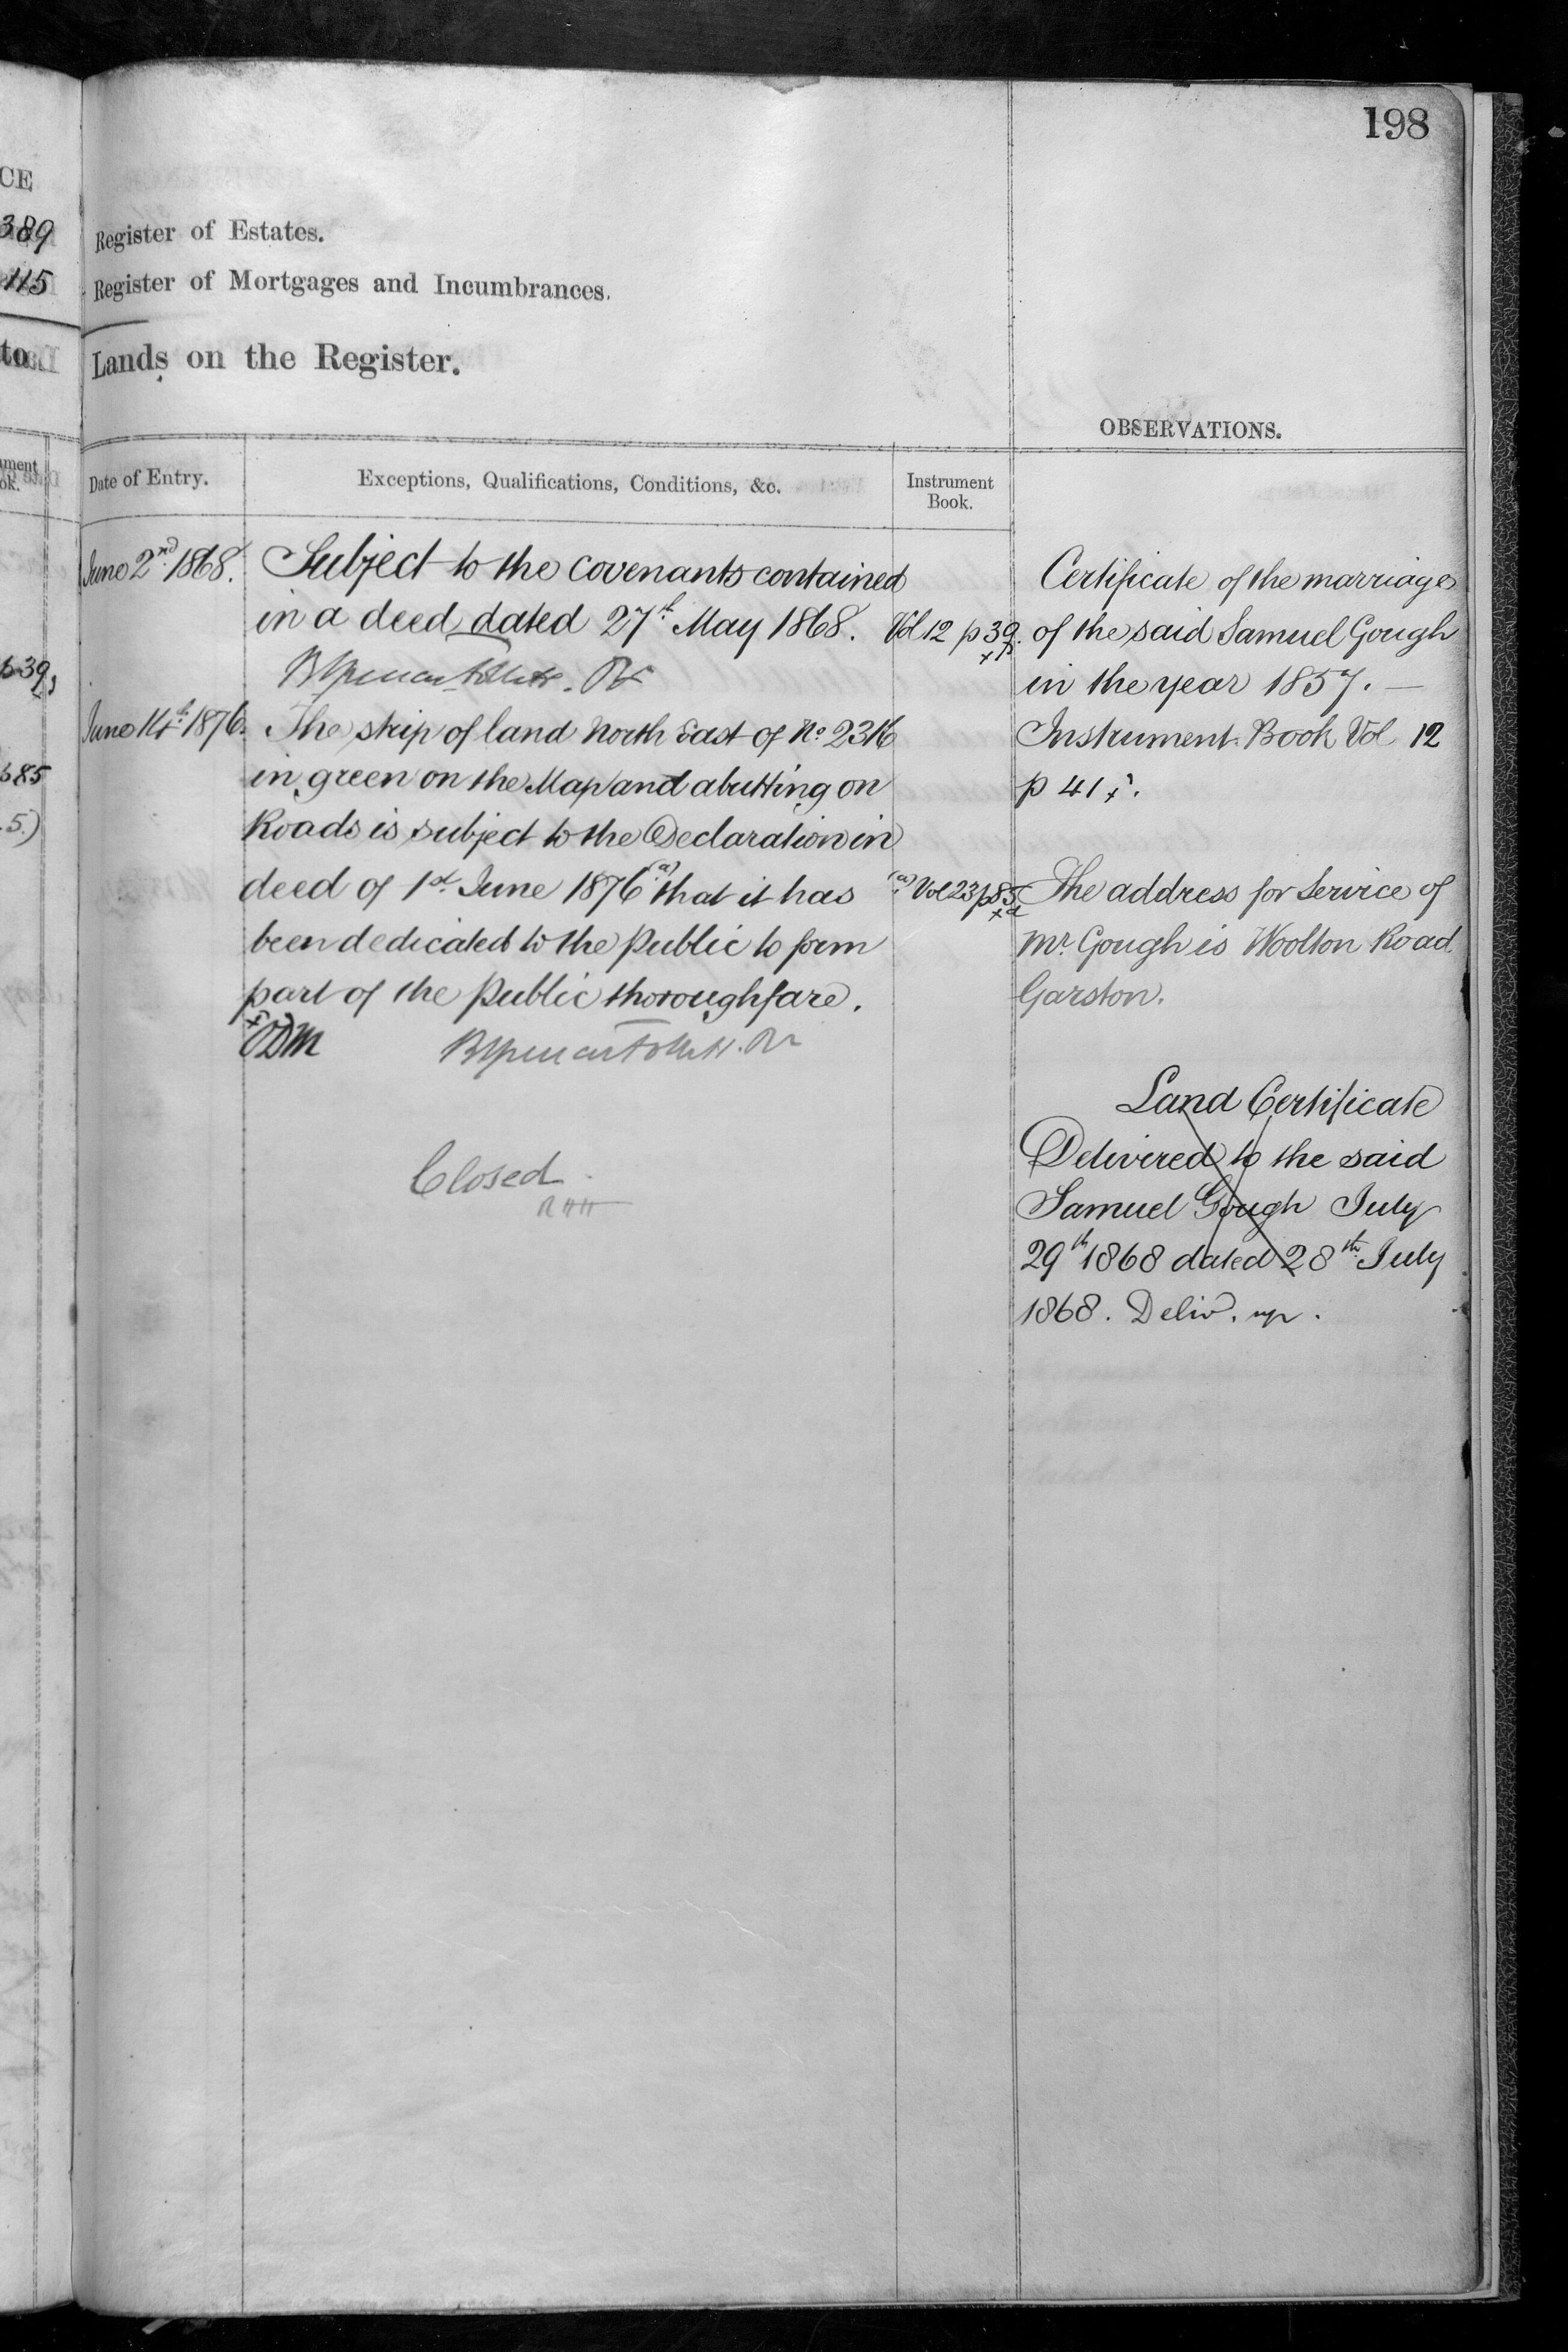 198
CE
389
115
to
Register of Estates.
Register of Mortgages and Incumbrances.
Lands on the Register.
OBSERVATIONS.
Date of Entry.
Exceptions, Qualifications, Conditions, &c.
Instrument
Book.
June 2nd 1868.
Subject to the covenants contained
in a deed dated 27th May 1868.
Vol 12 p 39.
June 14th 1876.
The strip of land North East of No. 2316
in green on the Map and abutting on
Roads is subject to the Declaration in
deed of 1st June 1876 (a) that it has
been dedicated to the public to form
part of the public thoroughfare.
(a) Vol 23 p 85
ODM
Closed
Certificate of the marriage
of the said Samuel Gough
in the year 1857. —
Instrument Book Vol 12
p 41
The address for Service of
Mr. Gough is Woolton Road
Garston.
Land Certificate
Delivered to the said
Samuel Gough July
29th 1868 dated 28th July
1868. Deliv. up.
p 39
p 85
5)